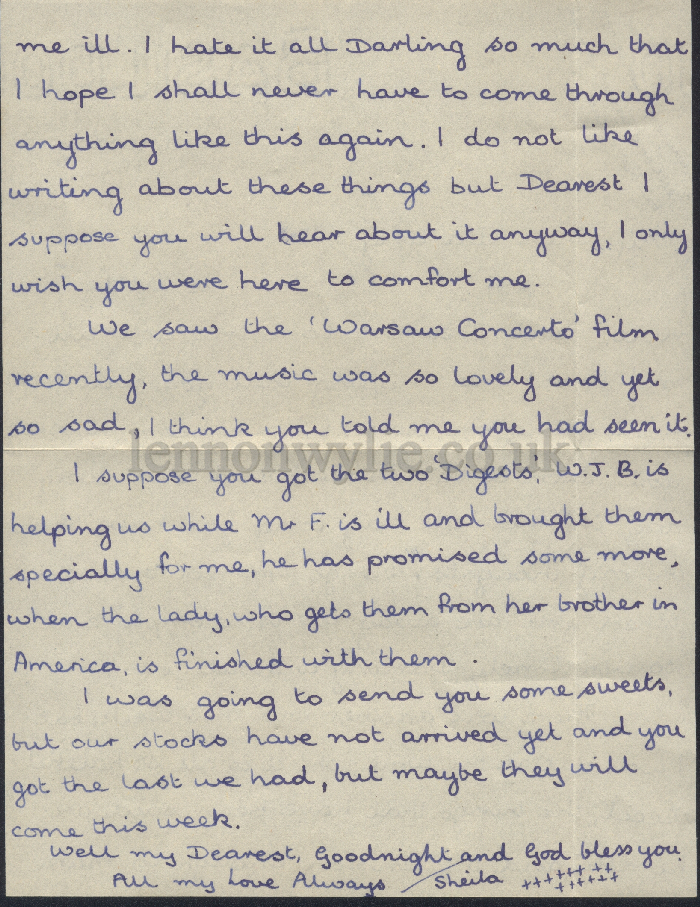 me ill. I hate it all Darling so much that
I hope I shall never have to come through
anything like this again. I do not like
writing about these things but Dearest I
suppose you will hear about it anyway, I only
wish you were here to comfort me.
We saw the 'Warsaw Concerto' film
recently, the music was so lovely and yet
so sad, I think you told me you had seen it.
lennonwylie.co.uk
I suppose you got the two 'Digests', W.J.B. is
helping us while Mr F. is ill and brought them
specially for me, he has promised some more,
when the lady, who gets them from her brother in
America, is finished with them.
I was going to send you some sweets,
but our stocks have not arrived yet and you
got the last we had, but maybe they will
come this week.
Well my Dearest, Goodnight and God bless you.
All my Love Always Sheila ++++++ ++
++++++